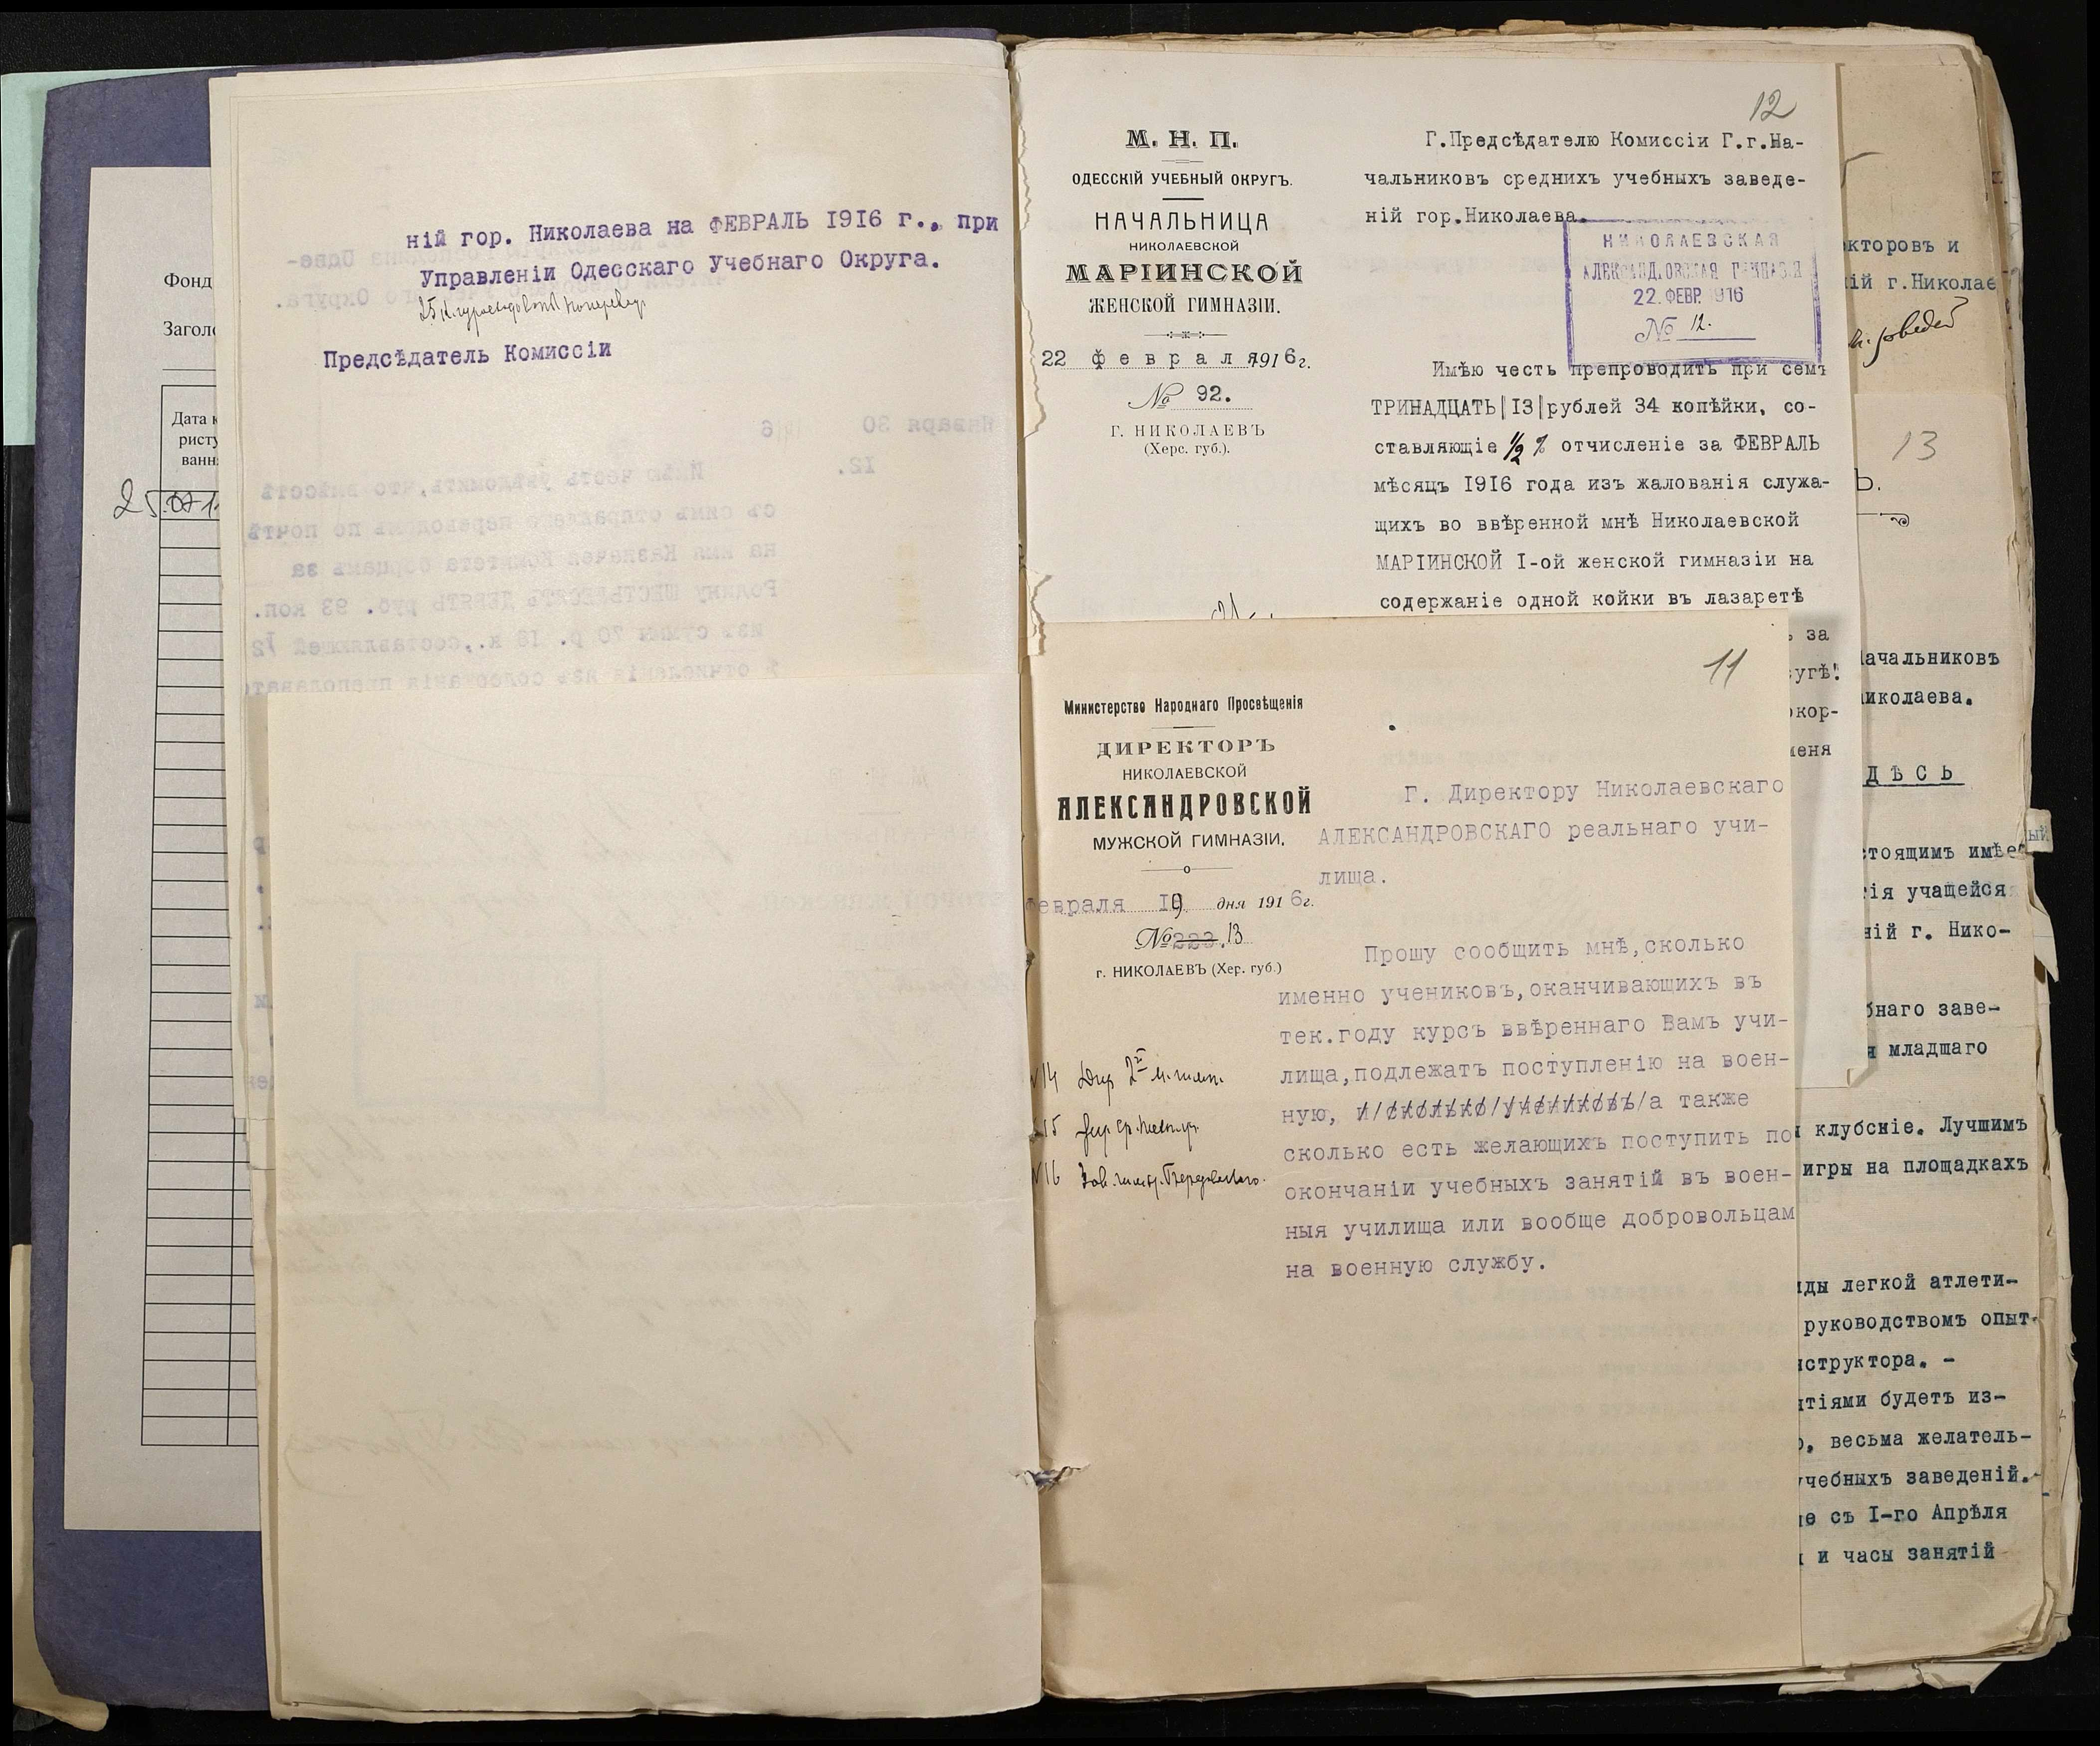 Фонд
Заголо
Дата к
ристу
ванн
25.07.1
ній гор. Николаева на ФЕВРАЛЬ 1916 г., при
Управленіи Одесскаго Учебнаго Округа.
Предсѣдатель Комиссіи
12
М. Н. П.
ОДЕССКІЙ УЧЕБНЫЙ ОКРУГЪ.
НАЧАЛЬНИЦА
НИКОЛАЕВСКОЙ
МАРІИНСКОЙ
ЖЕНСКОЙ ГИМНАЗІИ.
22 февраля 1916 г.
№ 92.
Г. НИКОЛАЕВЪ
(Херс. губ.).
Г.Предсѣдателю Комиссіи Г.г.На-
чальниковъ среднихъ учебныхъ заведе-
ній гор.Николаева.
НИКОЛАЕВСКАЯ
АЛЕКСАНДРОВСКАЯ ГИМНАЗІЯ
22. ФЕВР. 1916
№ 12.
Имѣю честь препроводить при семъ
ТРИНАДЦАТЬ|I3|рублей 34 копѣйки, со-
ставляющіе ½ % отчисленіе за ФЕВРАЛЬ
мѣсяцъ I9I6 года изъ жалованія служа-
щихъ во ввѣренной мнѣ Николаевской
МАРІИНСКОЙ I-ой женской гимназіи на
содержаніе одной койки въ лазаретѣ
за
угѣ!
кор-
меня
11
Министерство Народнаго Просвѣщенія
ДИРЕКТОРЪ
НИКОЛАЕВСКОЙ
АЛЕКСАНДРОВСКОЙ
МУЖСКОЙ ГИМНАЗІИ.
евраля 19 дня 1916 г.
№ 223. 13
г. НИКОЛАЕВЪ (Хер. губ.)
N14 Дир 2й м. гимн.
15
N16
Г. Директору Николаевскаго
АЛЕКСАНДРОВСКАГО реальнаго учи-
лища.
Прошу сообщить мнѣ,сколько
именно учениковъ,оканчивающихъ въ
тек.году курсъ ввѣреннаго Вамъ учи-
лища,подлежатъ поступленію на воен-
ную, и/сколько/учениковъ/а также
сколько есть желающихъ поступить по
окончаніи учебныхъ занятій въ воен-
ныя училища или вообще добровольцам
на военную службу.
екторовъ и
ій г.Николае
13
Ь.
ачальниковъ
иколаева.
ДѢСЬ
стоящимъ имѣе
ія учащейся
ній г. Нико-
бнаго заве-
младшаго
клубскіе. Лучшимъ
игры на площадкахъ
иды легкой атлети-
руководствомъ опыт-
структора. -
тіями будетъ из-
о, весьма желатель-
учебныхъ заведеній.-
е съ I-го Апрѣля
и часы занятій
ый